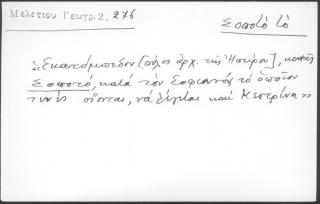 Μελετίου Γεωγρ. 2, 276
Σοποτό τό
«Ἑκατόμπεδον [πόλις ἀρχ. τῆς Ἠπείρου], κοινῶς
Σοποτό, κατά τόν Σοφιανόν, τό ὁποῖον
τινές οἴονται, νά λέγεται καί Κεστρίνη»